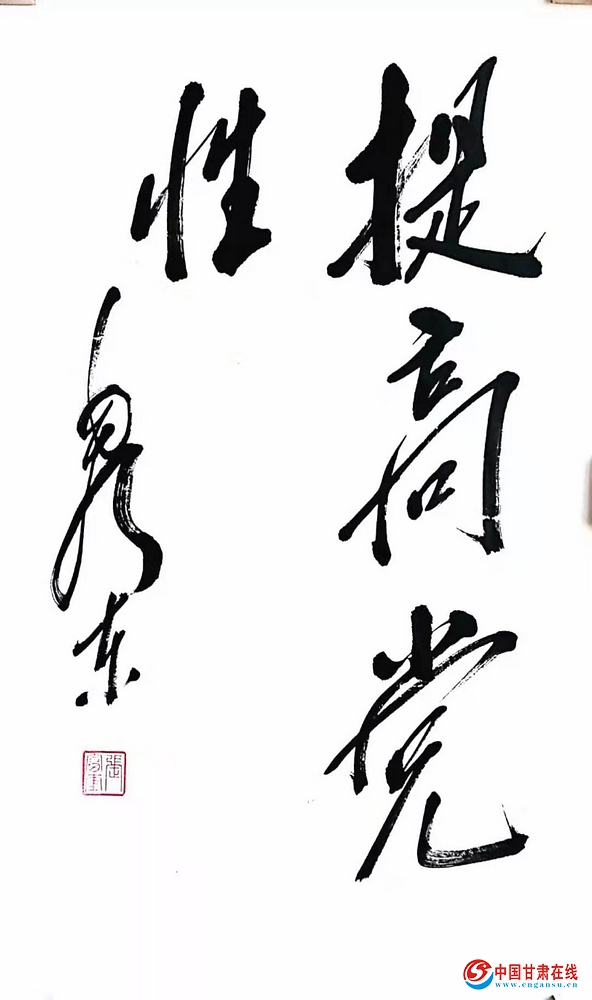 提高党
性
中国甘肃在线
www.cngansu.cn